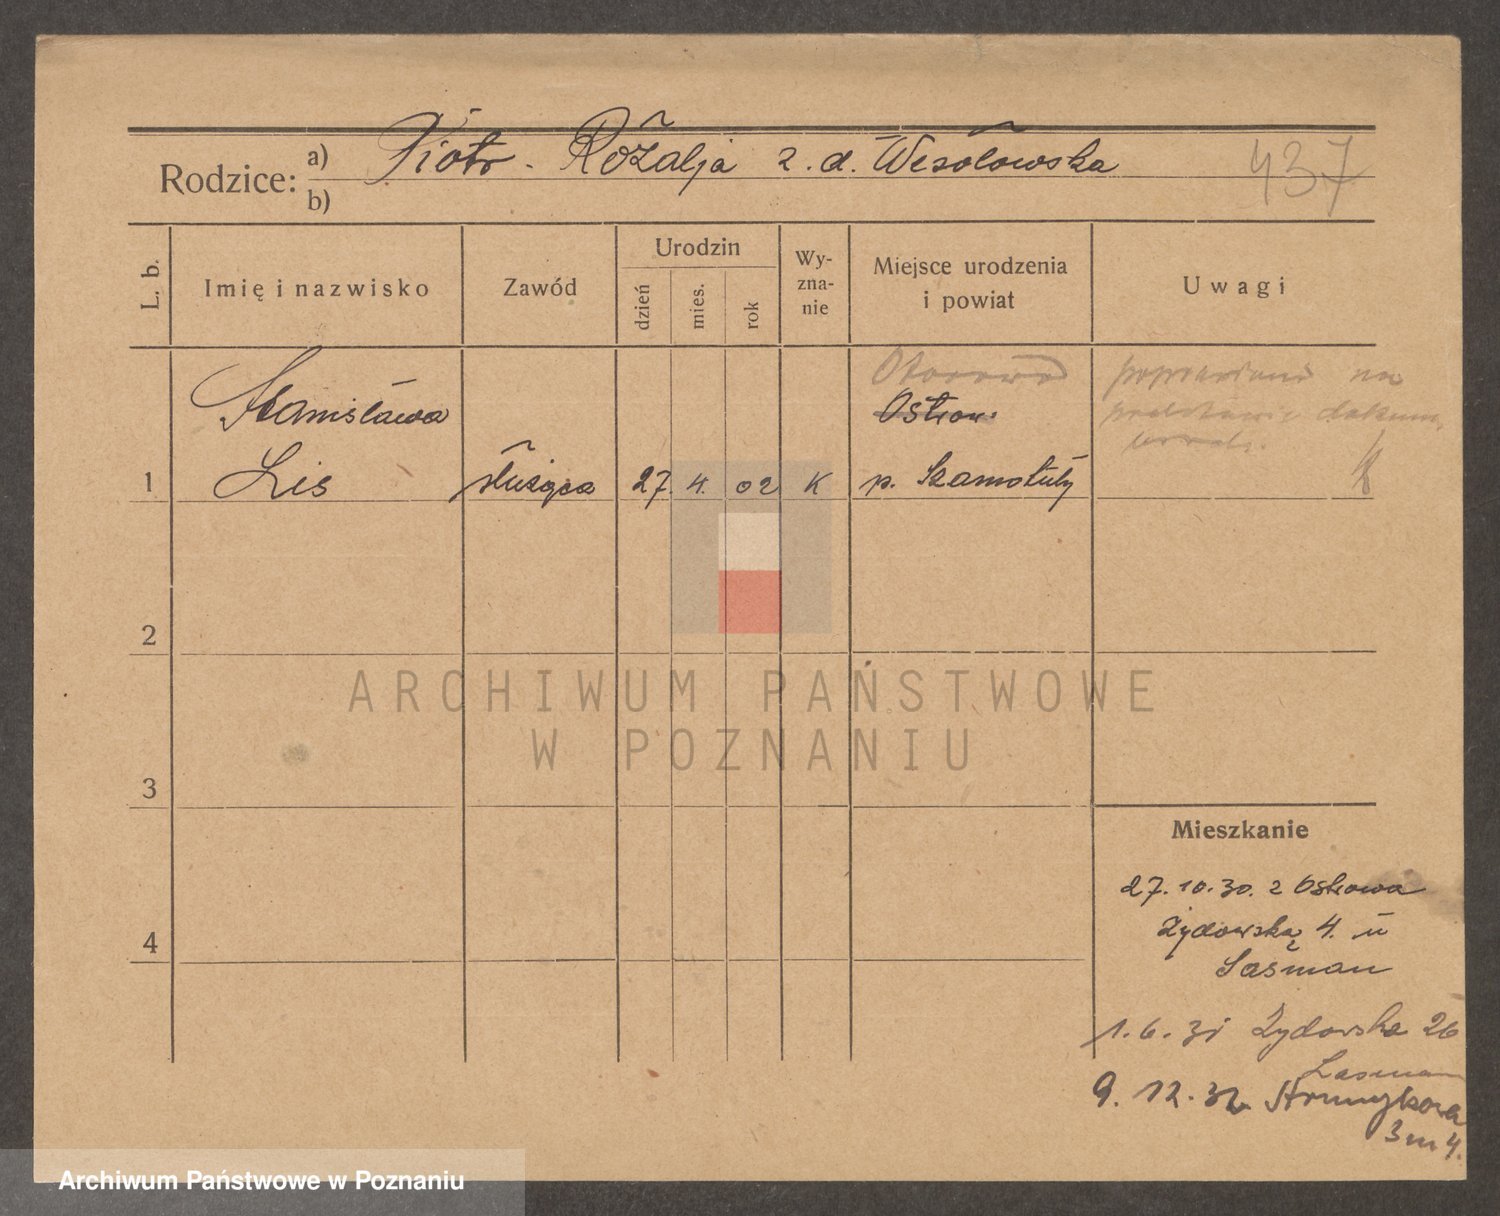 Rodzice: a) Piotr - Rozalja z. d. Wesołowska
437
b)
L. b.
Imię i nazwisko
Zawód
Urodzin
dzień
mies.
rok
Wy-
zna-
nie
Miejsce urodzenia
i powiat
Uwagi
Otorowo
poprawiono na
Stanisława
Ostrow
podstawie dokum.
1 Lis służąca 27. 4. 02 K p. Szamotuły
2
3
4
Mieszkanie
27. 10. 30. z Ostrowa
Żydowska 4. u
Lasman
1. 6. 31 Żydowska 26
Lasman
9. 12. 32
3 m 4.
ARCHIWUM PAŃSTWOWE
W POZNANIU
Archiwum Państwowe w Poznaniu